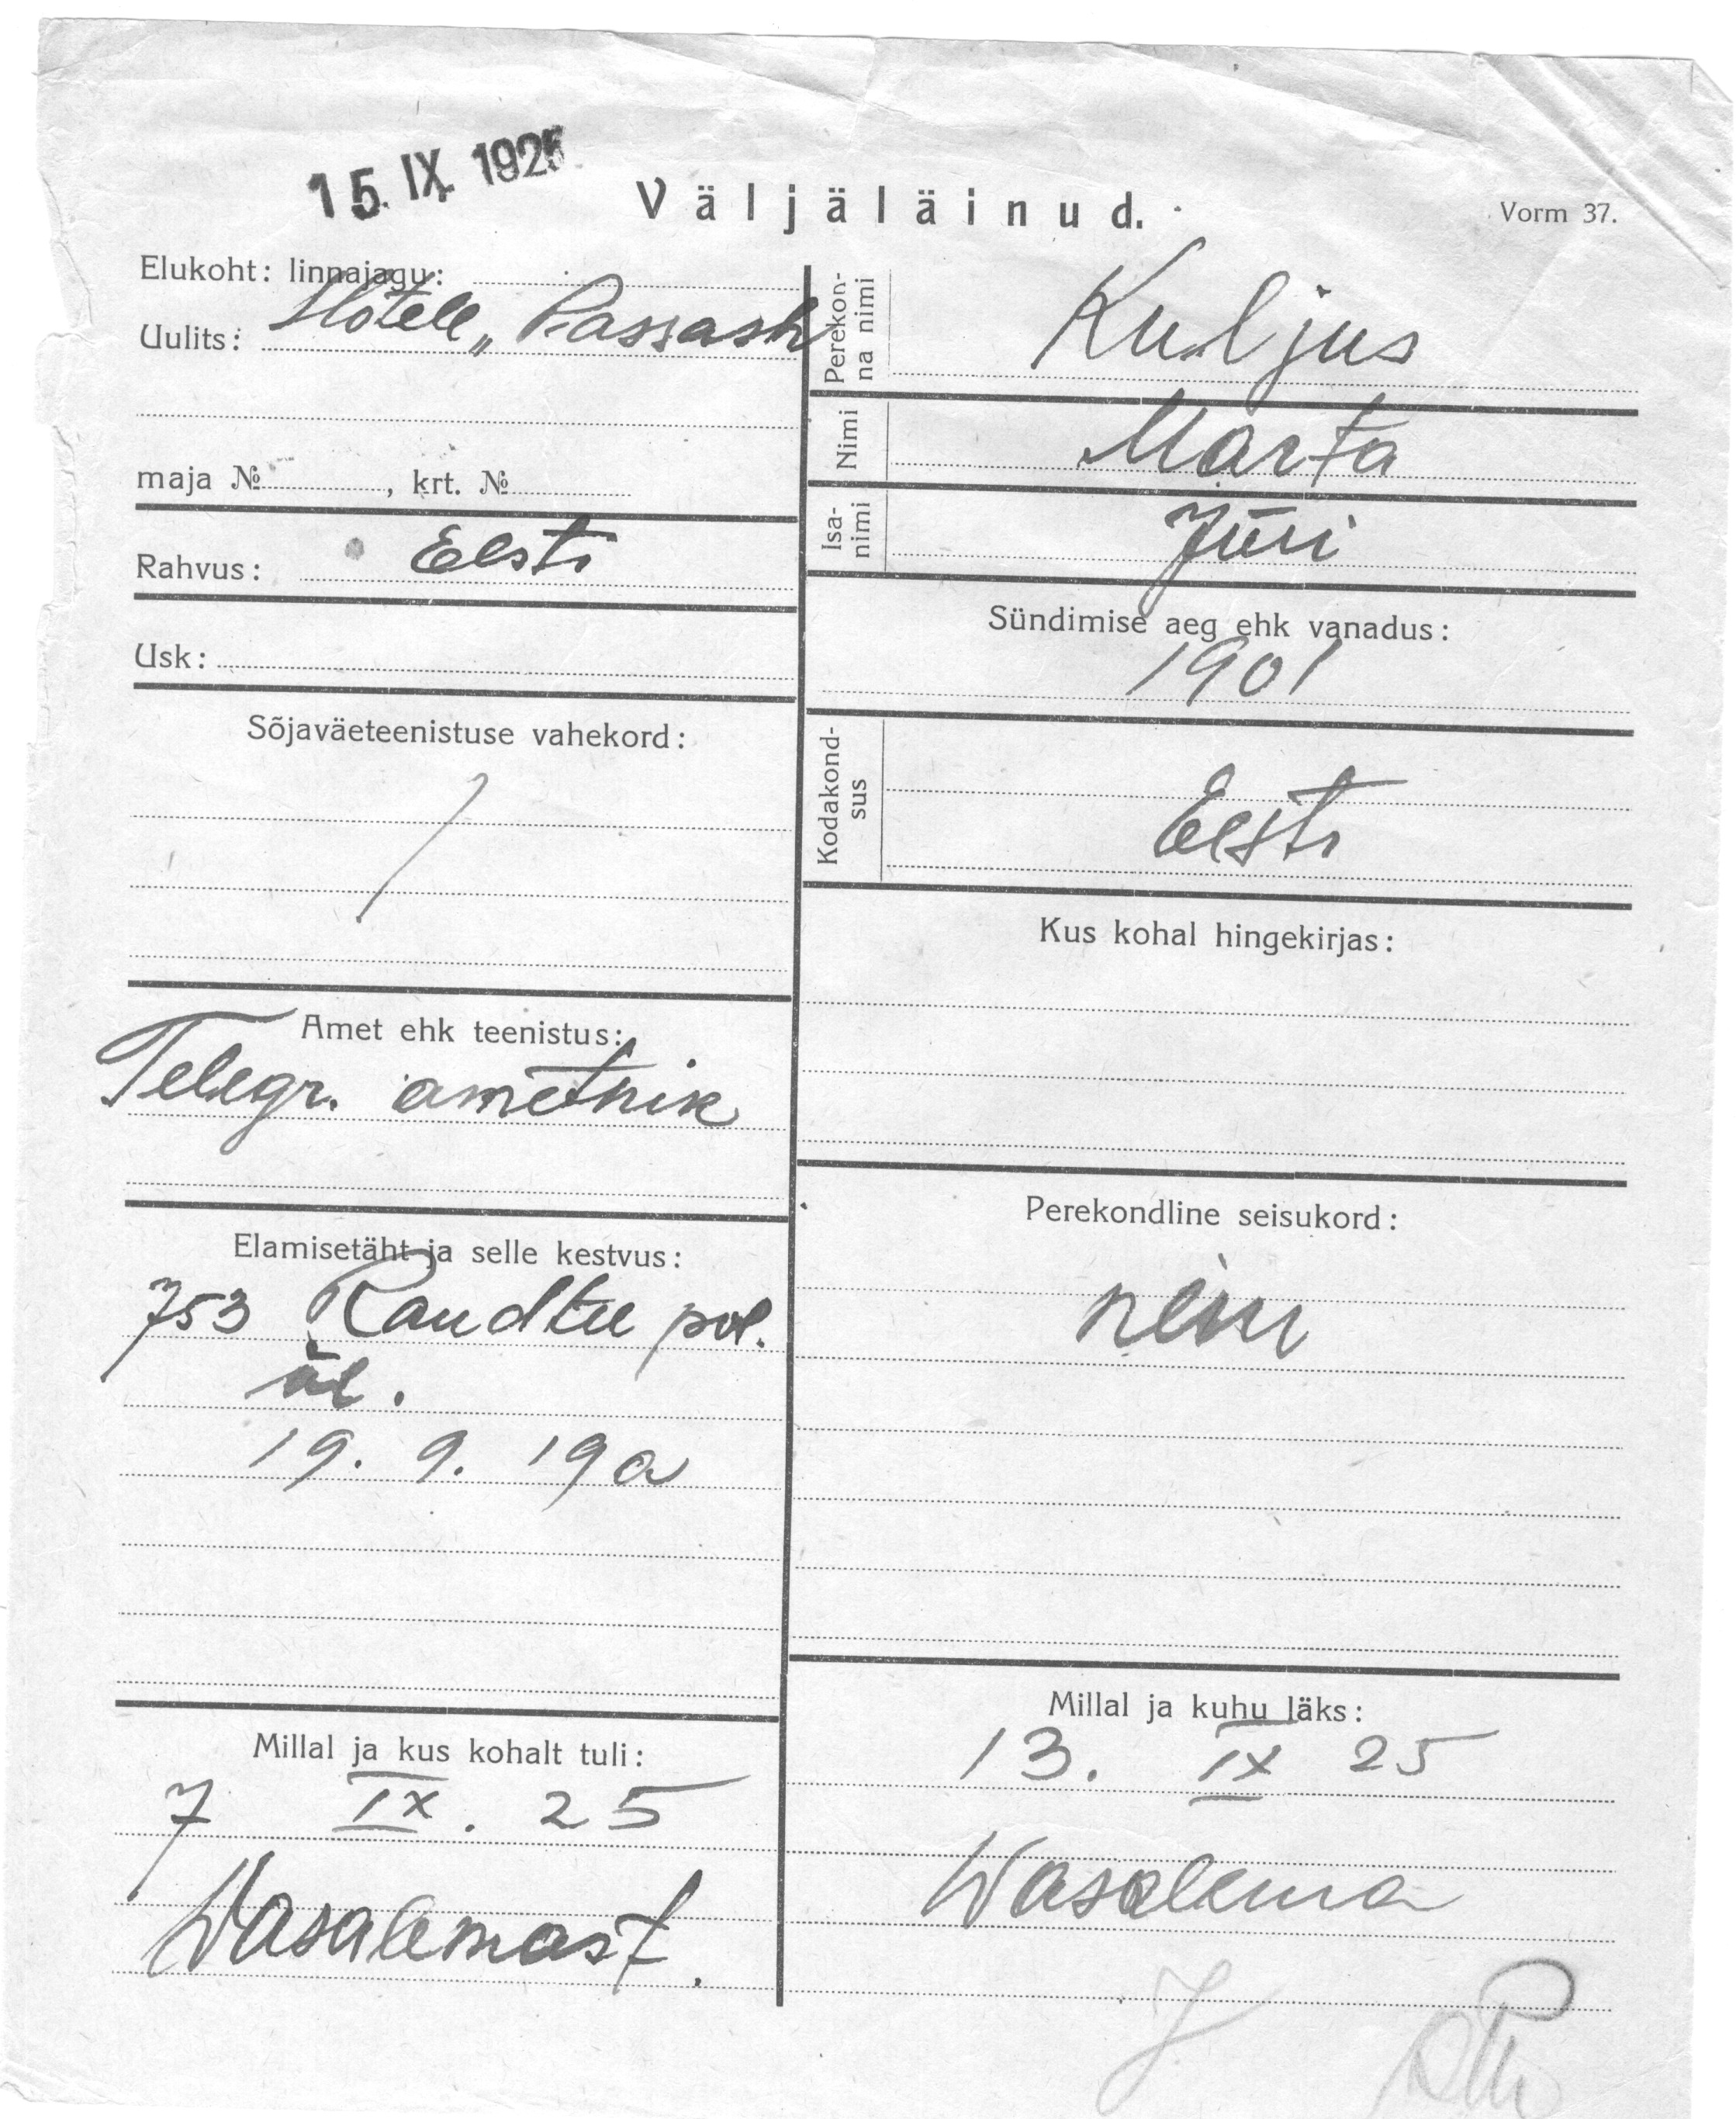 15. IX. 1925
Väljäläinud.
Vorm 37.
Elukoht: linnajagu:
Uulits: Hotell „Passash
maja №, krt. №
Rahvus: Eesti
Usk:
Sõjaväeteenistuse vahekord:
Amet ehk teenistus:
Telegr. ametnik
Elamisetäht ja selle kestvus:
753 Raudtee pol.
ül.
19. 9. 19 a
Millal ja kus kohalt tuli:
7 IX. 25
Wasalemast.
Perekon-
na nimi
Kuljus
Nimi
Marta
Isa-
nimi
Jüri
Sündimise aeg ehk vanadus:
1901
Kodakond-
sus
Eesti
Kus kohal hingekirjas:
Perekondline seisukord:
neiu
Millal ja kuhu läks:
13. IX 25
Wasalema